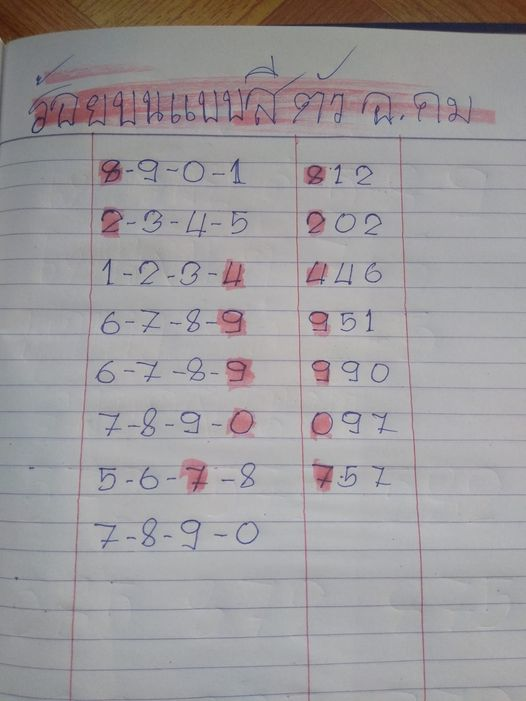 ร้อยบนแบบสี่ตัว อ.คม
8-9-0-1 812
2-3-4-5 202
1-2-3-4 446
6-7-8-9 951
6-7-8-9 990
7-8-9-0 097
5-6-7-8 757
7-8-9-0